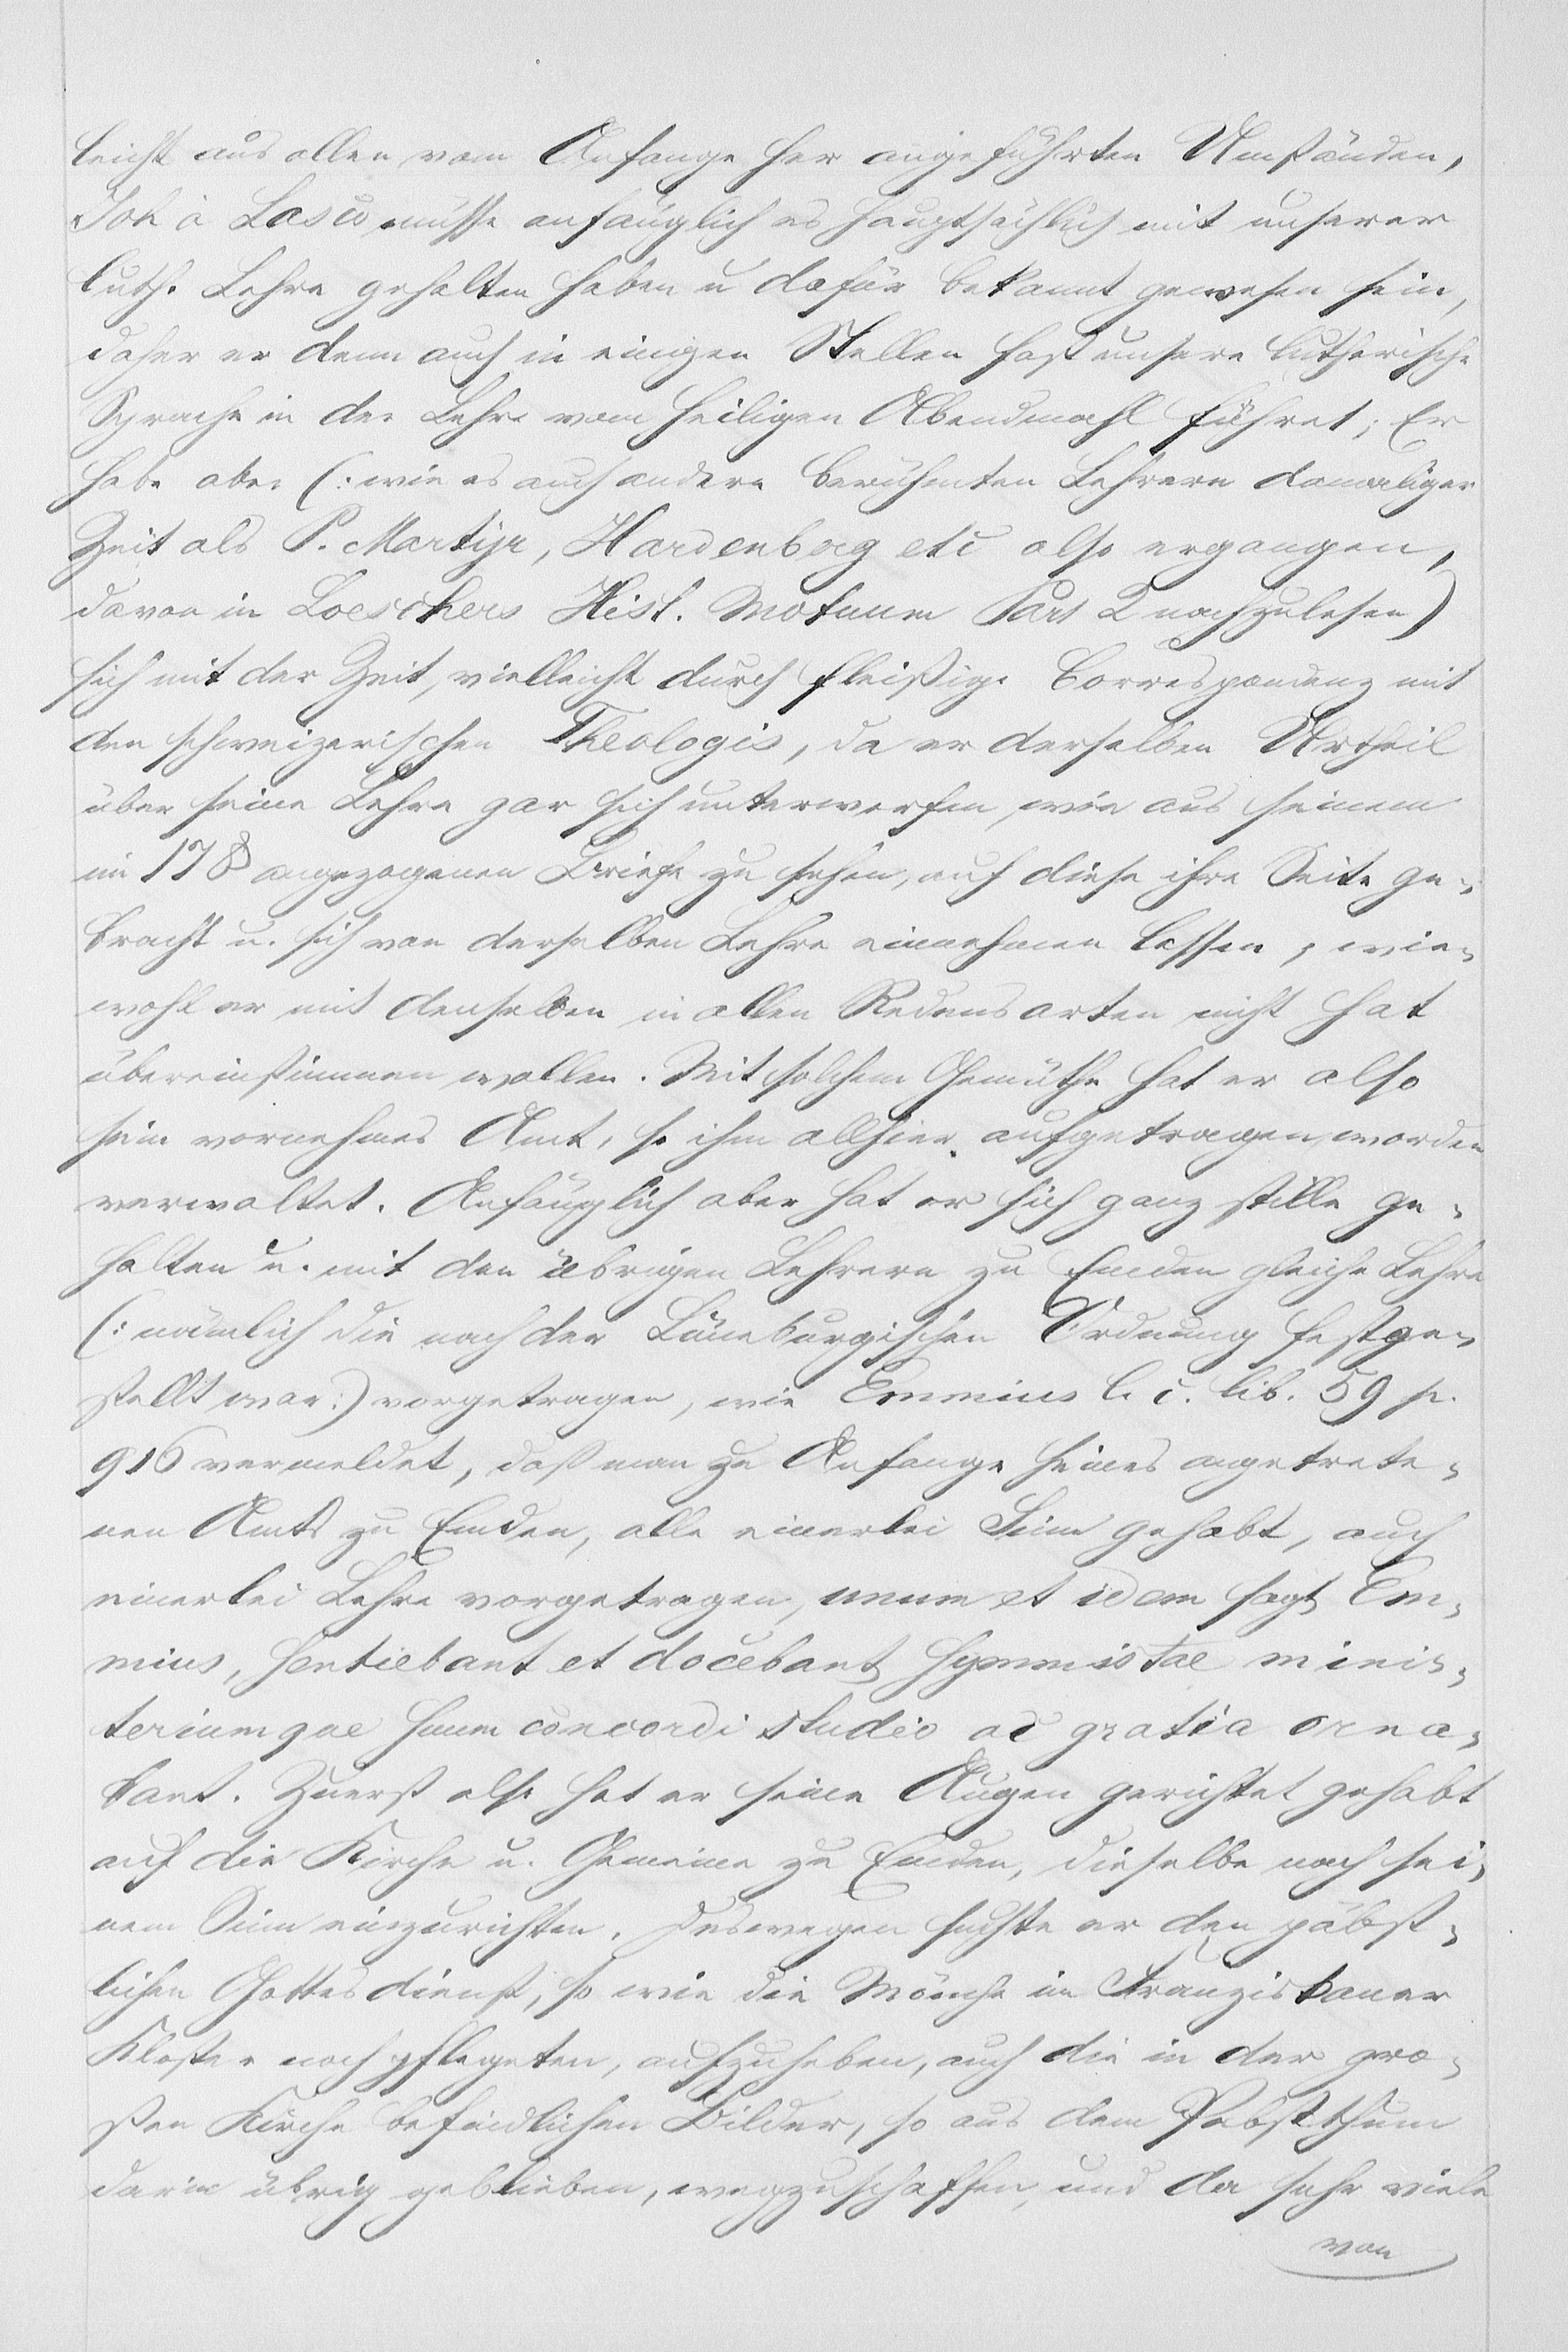 leicht aus allen vom Anfange her angeführten Umständen,
Joh à Lasco müsse anfänglich es hauptsächlich mit unserer
luth. Lehre gehalten haben u dafür bekannt gewesen sein,
daher er denn auch in einigen Stellen fast unsere lutherische
Sprache in der Lehre vom heiligen Abendmahl führet; Er
habe aber (: wie es auch andern berühmten Lehrern damaliger
Zeit als P. Martijr, Hardenberg etc also ergangen,
davon in Loeschers Hist. Motuum Part 2 nachzulesen)
sich mit der Zeit, vielleicht durch fleißige Correspondenz mit
den schweizerischen Theologis, da er derselben Urtheil
über seine Lehre gar sich unterworfen, wie aus seinem
im 178 angezogenen Briefe zu sehen, auf diese ihre Seite ge-
bracht u. sich von derselben Lehre einnehmen lassen, wie-
wohl er mit denselben in allen Redensarten nicht hat
übereinstimmen wollen. Mit solchem Gemüthe hat er also
sein vornehmes Amt, so ihm allhier aufgetragen worden
verwaltet. Anfänglich aber hat er sich ganz stille ge-
halten u. mit den übrigen Lehrern zu Emden gleiche Lehre
(: nämlich die nach der Lüneburgischen Ordnung festge-
stellt war:) vorgetragen, wie Emmius l. c. lib. 59 p.
916 vermeldet, daß man zu Anfange seines angetrete-
nen Amts zu Emden, alle einerlei Sinn gehabt, auch
einerlei Lehre vorgetragen, unum et idem sagt Em-
mius, sentiebant et docebant symmistae minis-
teriumque suum concordi studio ac gratia orna-
bant. Zuerst also hat er seine Augen gerichtet gehabt
auf die Kirche u. Gemeine zu Emden, dieselbe nach sei-
nem Sinn einzurichten. Deswegen suchte er den päbst-
lichen Gottesdienst, so wie die Mönche im Franziskaner
Kloster noch pflegeten, aufzuheben, auch die in der gro-
ßen Kirche befindlichen Bilder, so aus dem Pabstthum
darin übrig geblieben, wegzuschaffen, und da sehr viele
von